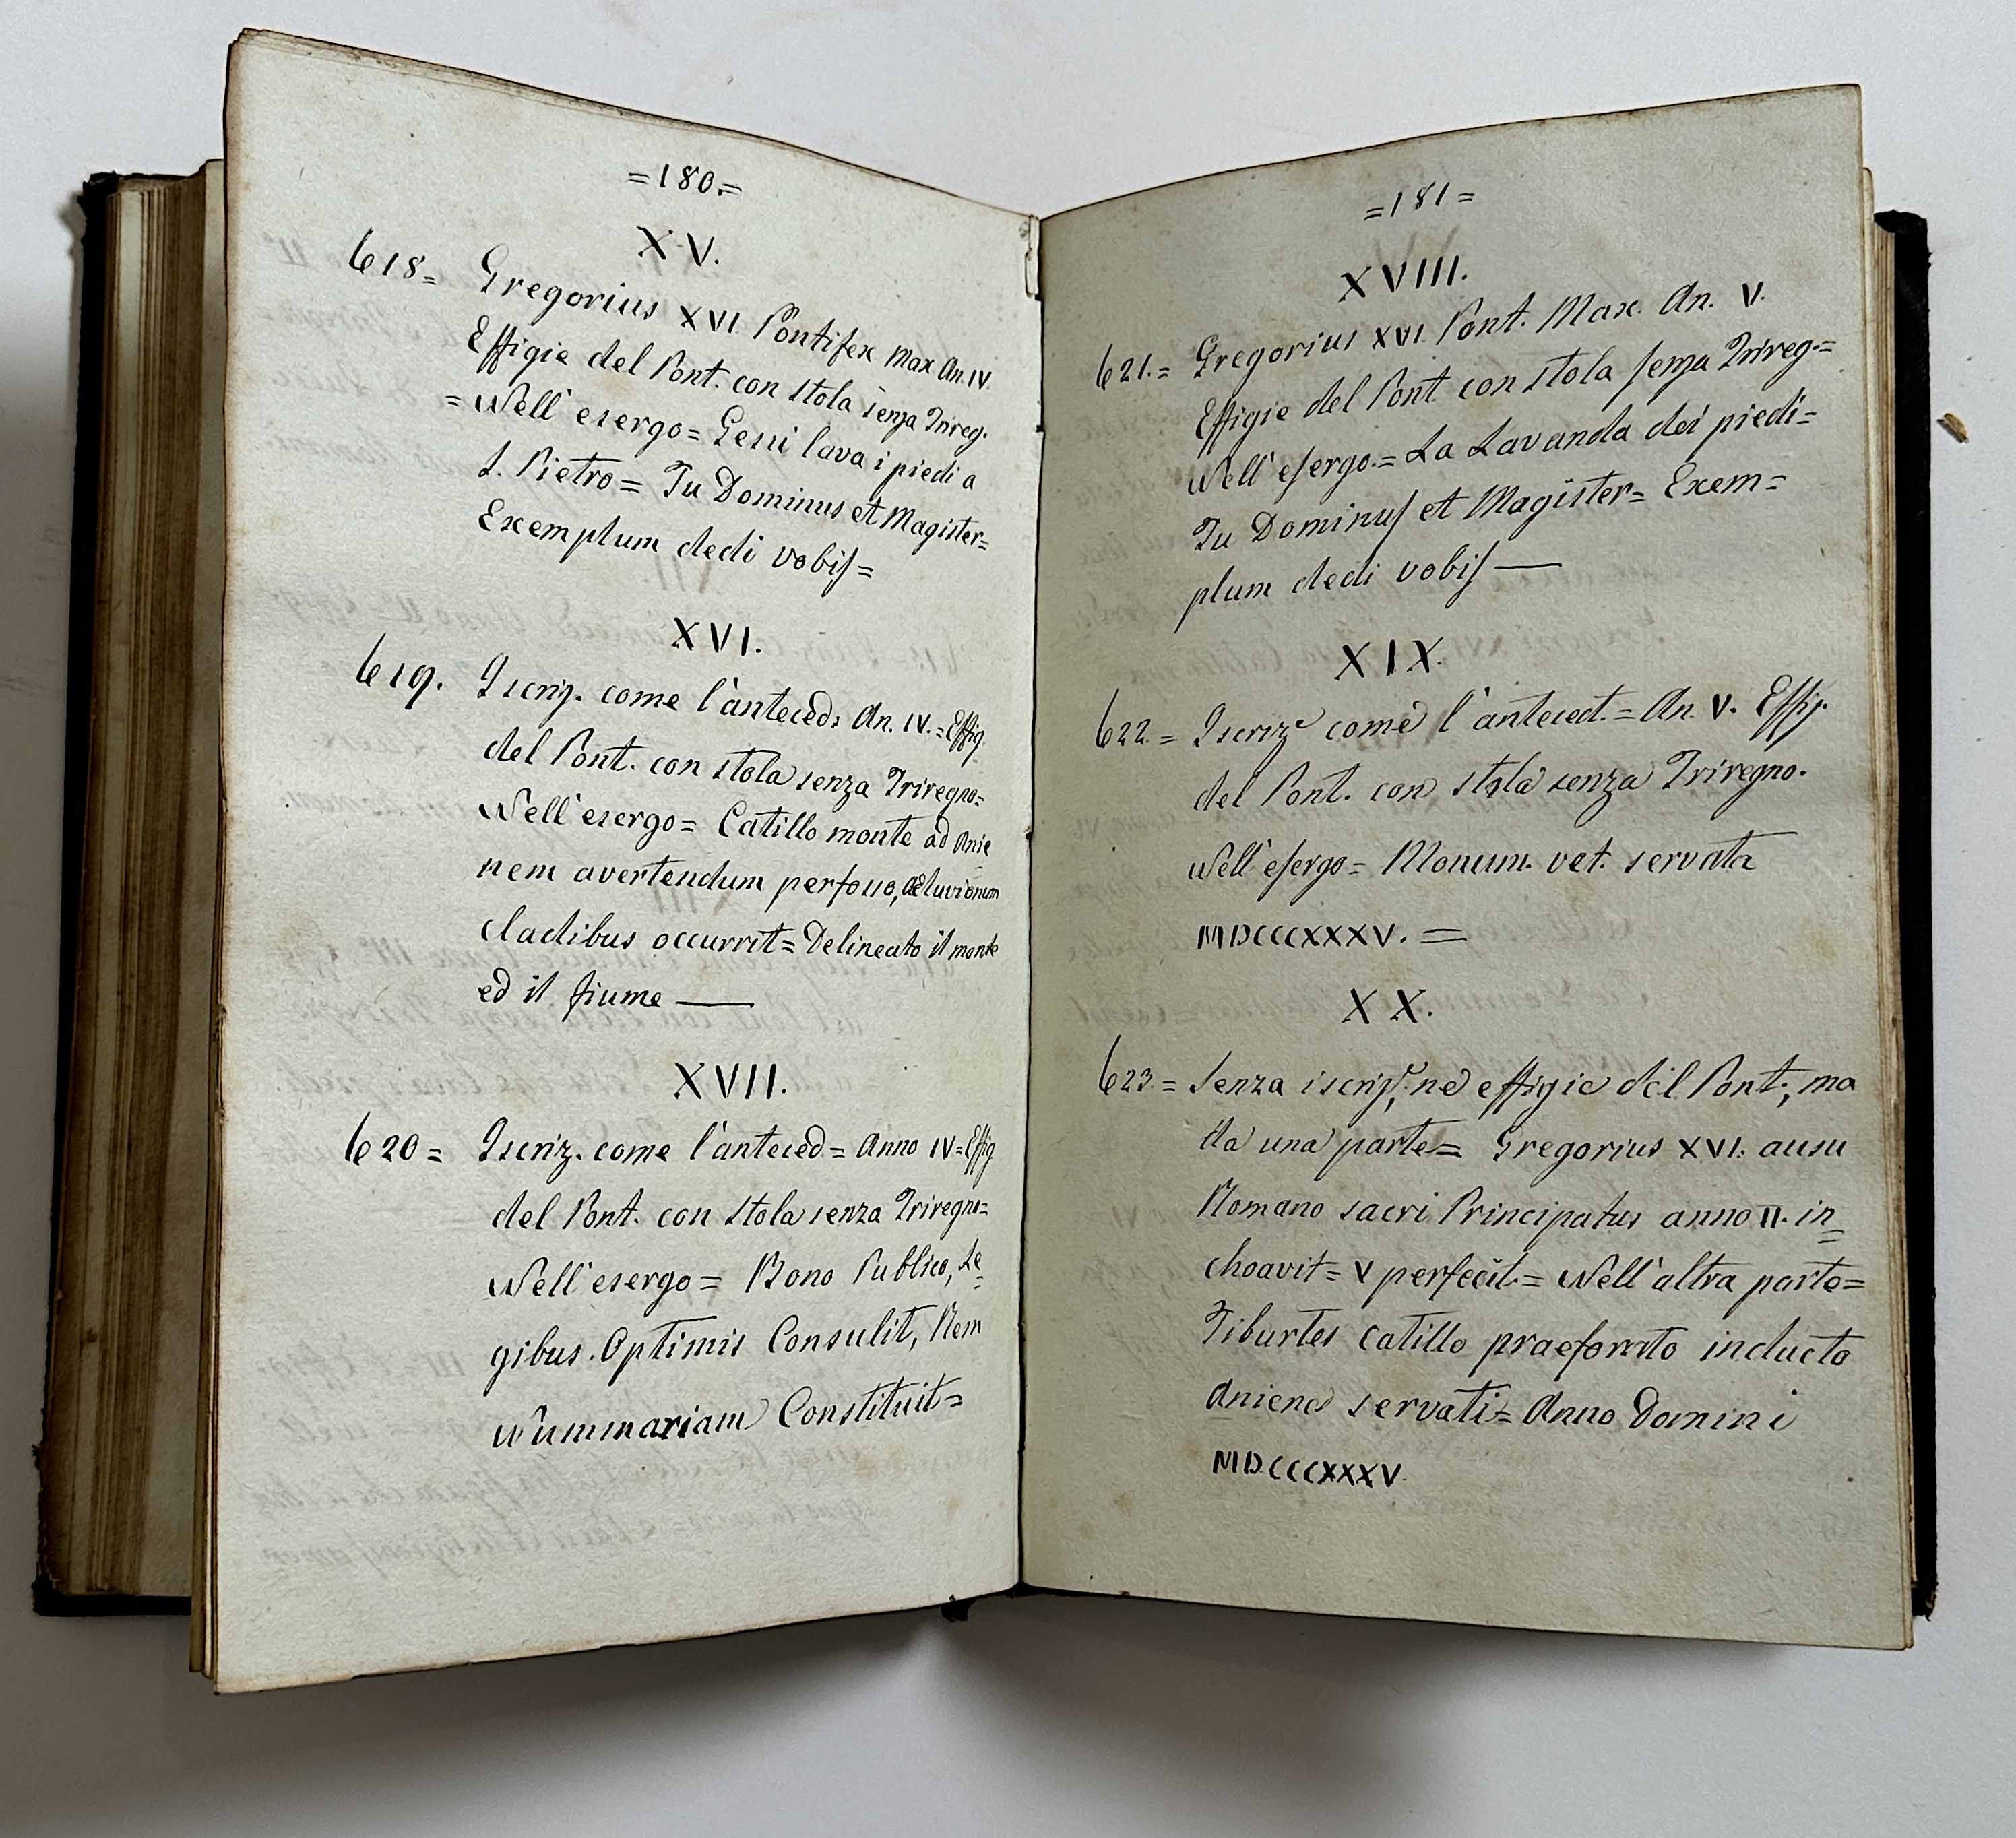 =180.=
XV.
618= Gregorius XVI Pontifex Max An. IV
Effigie del Pont. con stola senza Trireg.
= Nell'esergo = Gesù lava i piedi a
S. Pietro = Tu Dominus et Magister=
Exemplum dedi vobis=
XVI.
619. Iscriz. come l'anteced. An. IV.=Effig.
del Pont. con stola senza Triregno=
Nell'esergo= Catillo monte ad Anie
nem avertendum perfosso,
cladibus occurrit= Delineato il monte
ed il fiume —
XVII.
620= Iscriz. come l'anteced= Anno IV=Effig
del Pont. con stola senza Triregno=
Nell'esergo= Bono Publico, Le=
gibus. Optimis Consulit, Rem
Nummariam Constituit=
=181=
XVIII.
621.= Gregorius XVI. Pont. Max. An. V.
Effigie del Pont con stola senza Trireg.=
Nell'esergo.= La Lavanda dei piedi=
Tu Dominus et Magister= Exem=
plum dedi vobis —
XIX.
622.= Iscrize come l'anteced.= An. V. Effig.
del Pont. con stola senza Triregno.
Nell'esergo= Monum. vet. servata
MDCCCXXXV. =
XX.
623.= Senza iscriz.e, nè effigie del Pont., ma
da una parte= Gregorius XVI. ausu
Romano sacri Principatus anno II. in=
choavit= V perfecit= Nell'altra parte=
Tiburtes Catillo praeforato inducto
Aniene servati= Anno Domini
MDCCCXXXV.